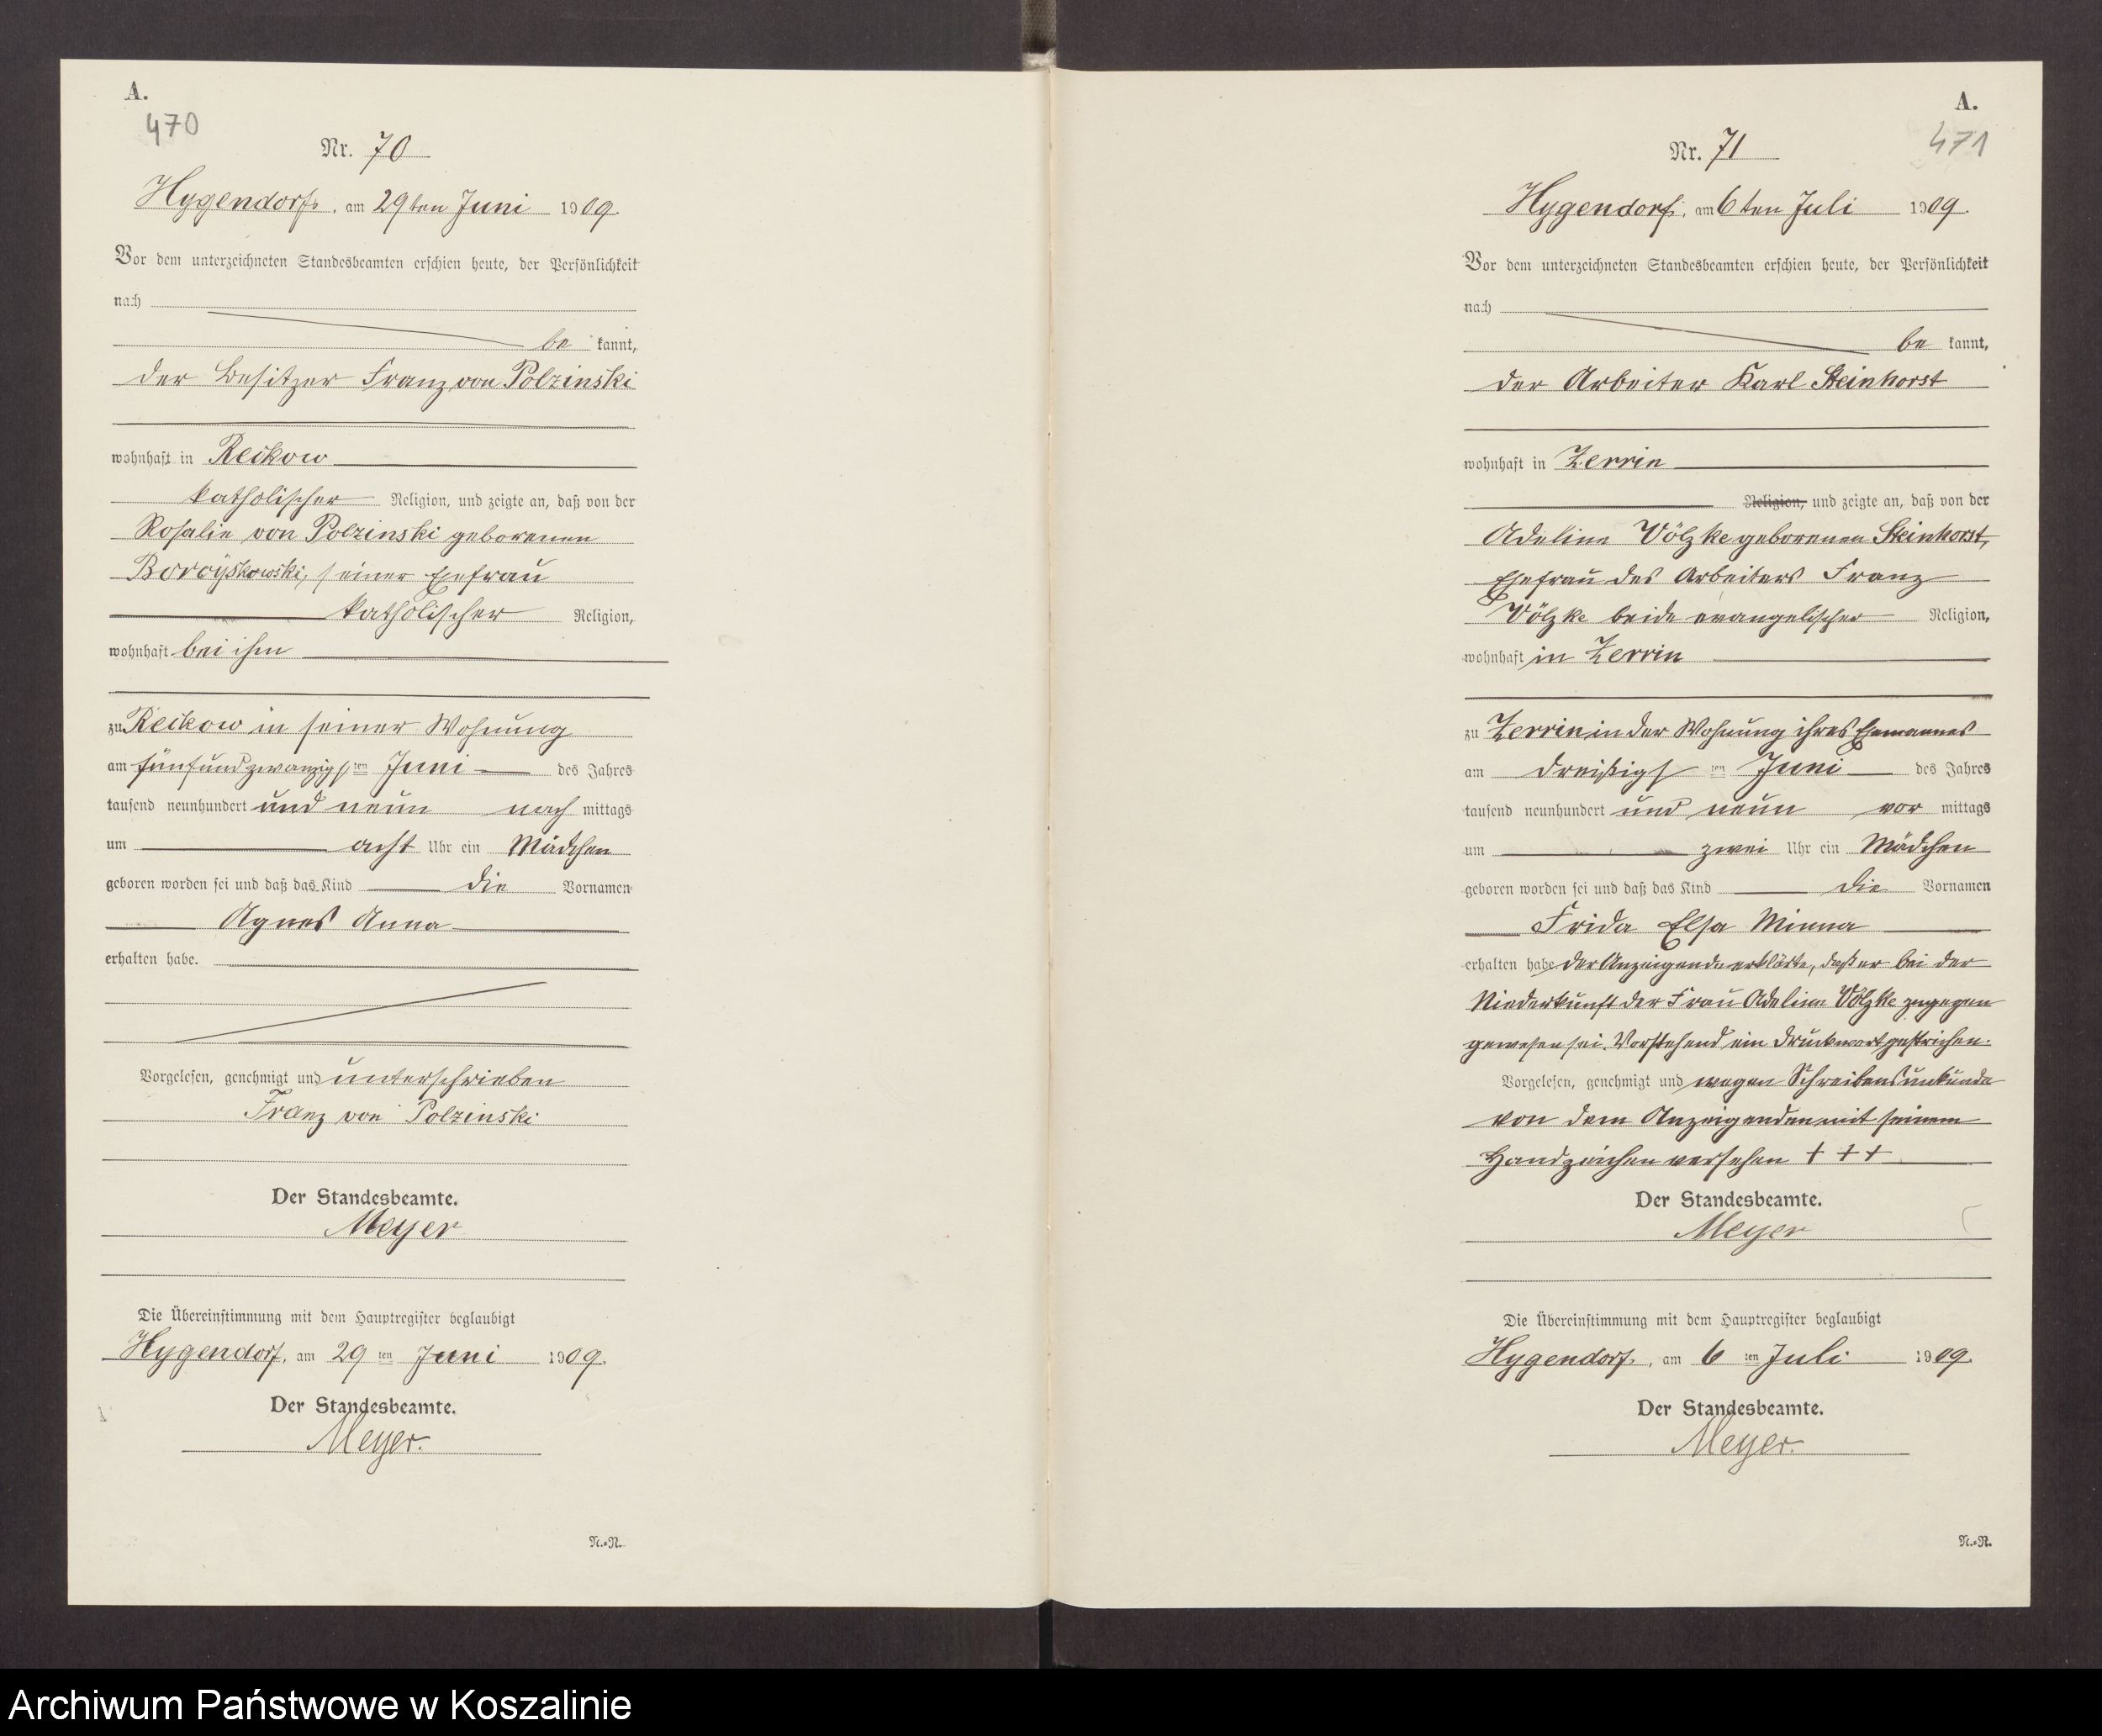 A.
470
Nr. 70
Hygendorf, am 29ten Juni 1909.
Vor dem unterzeichneten Standesbeamten erschien heute, der Persönlichkeit
nach
be kannt,
der Besitzer Franz von Polzinski
wohnhaft in Reikow
katholischer Religion, und zeigte an, daß von der
Rosalie von Polzinski geborenen
seiner Ehefrau
katholischer Religion,
wohnhaft bei ihm
zu Reikow in seiner Wohnung
am fünfundzwanzigsten Juni des Jahres
tausend neunhundert und neun nach mittags
um acht Uhr ein Mädchen
geboren worden sei und daß das Kind die Vornamen
Agnes Anna
erhalten habe.
Vorgelesen, genehmigt und unterschrieben
Franz von Polzinski
Der Standesbeamte.
Meyer
Die Übereinstimmung mit dem Hauptregister beglaubigt
Hygendorf, am 29 ten Juni 1909.
Der Standesbeamte.
Meyer.
N.=R.
A.
471
Nr. 71
Hygendorf, am 6ten Juli 1909.
Vor dem unterzeichneten Standesbeamten erschien heute, der Persönlichkeit
nach
be kannt,
der Arbeiter Karl Steinhorst
wohnhaft in Zerrin
Religion, und zeigte an, daß von der
Adeline Völzke geborenen Steinhorst,
Ehefrau des Arbeiters Franz
Völzke beide evangelischer Religion,
wohnhaft in Zerrin
zu Zerrin in der Wohnung ihres Ehemannes
am dreißigsten Juni des Jahres
tausend neunhundert und neun vor mittags
um zwei Uhr ein Mädchen
geboren worden sei und daß das Kind die Vornamen
Frida Elsa Minna
erhalten habe der Anzeigende erklärte, daß er bei der
Niederkunft der Frau Adeline Völzke zugegen
gewesen sei. Vorstehend ein Druckwort gestrichen.
Vorgelesen, genehmigt und wegen Schreibensunkunde
von dem Anzeigenden mit seinem
Handzeichen versehen + + +
Der Standesbeamte.
Meyer
Die Übereinstimmung mit dem Hauptregister beglaubigt
Hygendorf, am 6 ten Juli 1909.
Der Standesbeamte.
Meyer.
N.=R.
Archiwum Państwowe w Koszalinie